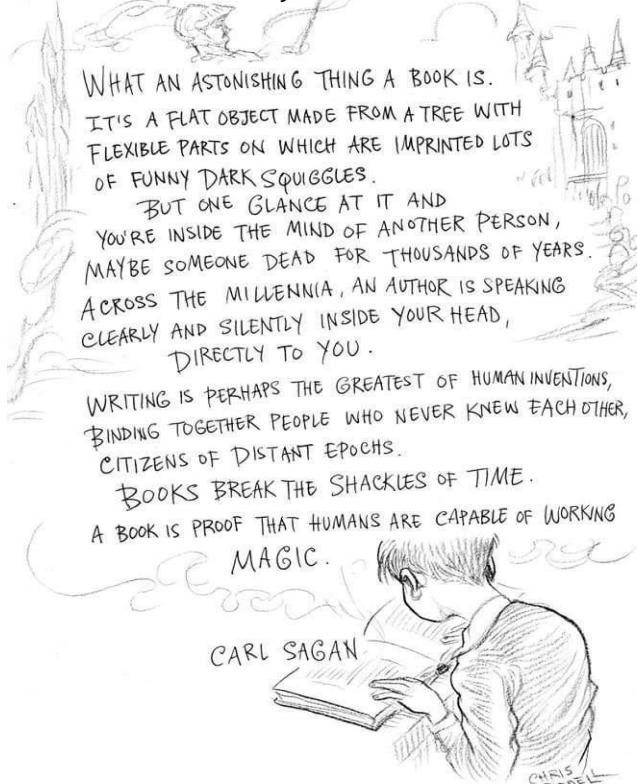 WHAT AN ASTONISHING THING A BOOK IS.
IT'S A FLAT OBJECT MADE FROM A TREE WITH
FLEXIBLE PARTS ON WHICH ARE IMPRINTED LOTS
OF FUNNY DARK SQUIGGLES.
BUT ONE GLANCE AT IT AND
YOU'RE INSIDE THE MIND OF ANOTHER PERSON,
MAYBE SOMEONE DEAD FOR THOUSANDS OF YEARS.
ACROSS THE MILLENNIA, AN AUTHOR IS SPEAKING
CLEARLY AND SILENTLY INSIDE YOUR HEAD,
DIRECTLY TO YOU.
WRITING IS PERHAPS THE GREATEST OF HUMAN INVENTIONS,
BINDING TOGETHER PEOPLE WHO NEVER KNEW EACH OTHER,
CITIZENS OF DISTANT EPOCHS.
BOOKS BREAK THE SHACKLES OF TIME.
A BOOK IS PROOF THAT HUMANS ARE CAPABLE OF WORKING
MAGIC.
CARL SAGAN
CHRIS